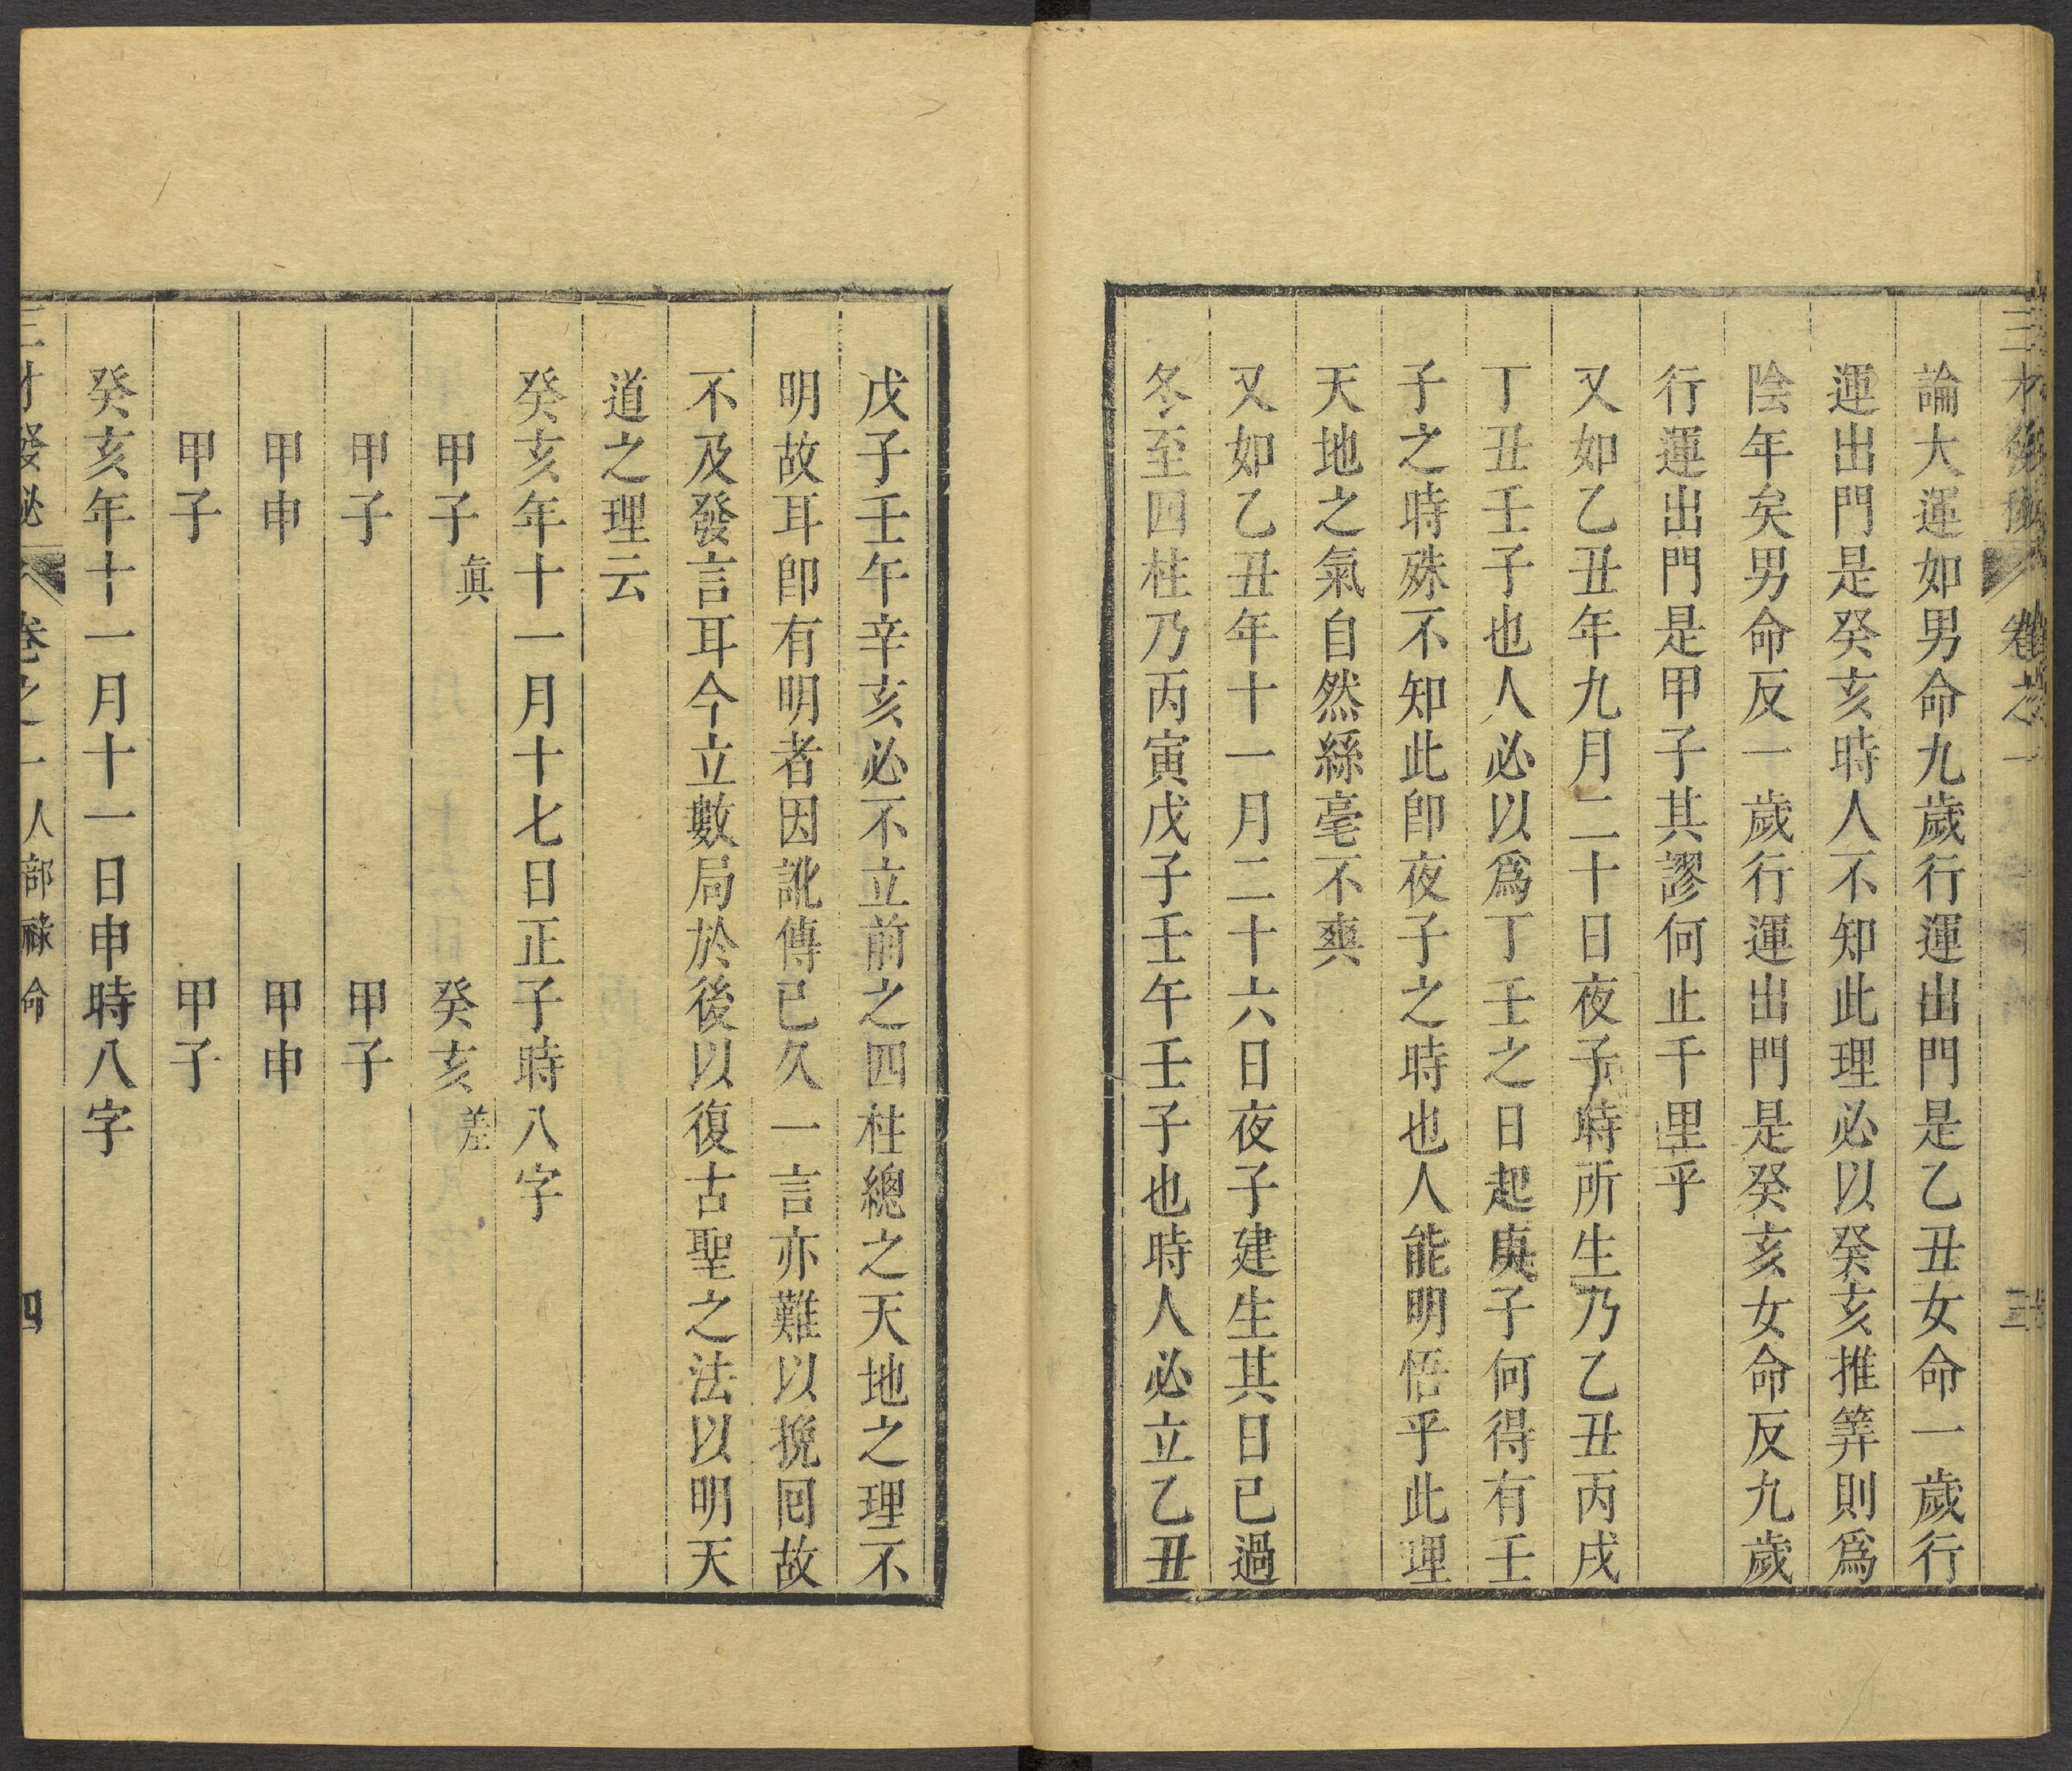 三才發祕 卷之一 三
論大運如男命九歲行運出門是乙丑女命一歲行
運出門是癸亥時人不知此理必以癸亥推筭則爲
陰年矣男命反一歲行運出門是癸亥女命反九歲
行運出門是甲子其謬何止千里乎
又如乙丑年九月二十日夜子時所生乃乙丑丙戌
丁丑壬子也人必以爲丁壬之日起庚子何得有壬
子之時殊不知此卽夜子之時也人能明悟乎此理
天地之氣自然絲毫不爽
又如乙丑年十一月二十六日夜子建生其日已過
冬至四柱乃丙寅戊子壬午壬子也時人必立乙丑
戊子壬午辛亥必不立前之四柱總之天地之理不
明故耳卽有明者因訛傳已久一言亦難以挽囘故
不及發言耳今立數局於後以復古聖之法以明天
道之理云
癸亥年十一月十七日正子時八字
甲子眞 癸亥差
甲子 甲子
甲申 甲申
甲子 甲子
癸亥年十一月十一日申時八字
三才發祕 卷之一 人部祿命 四